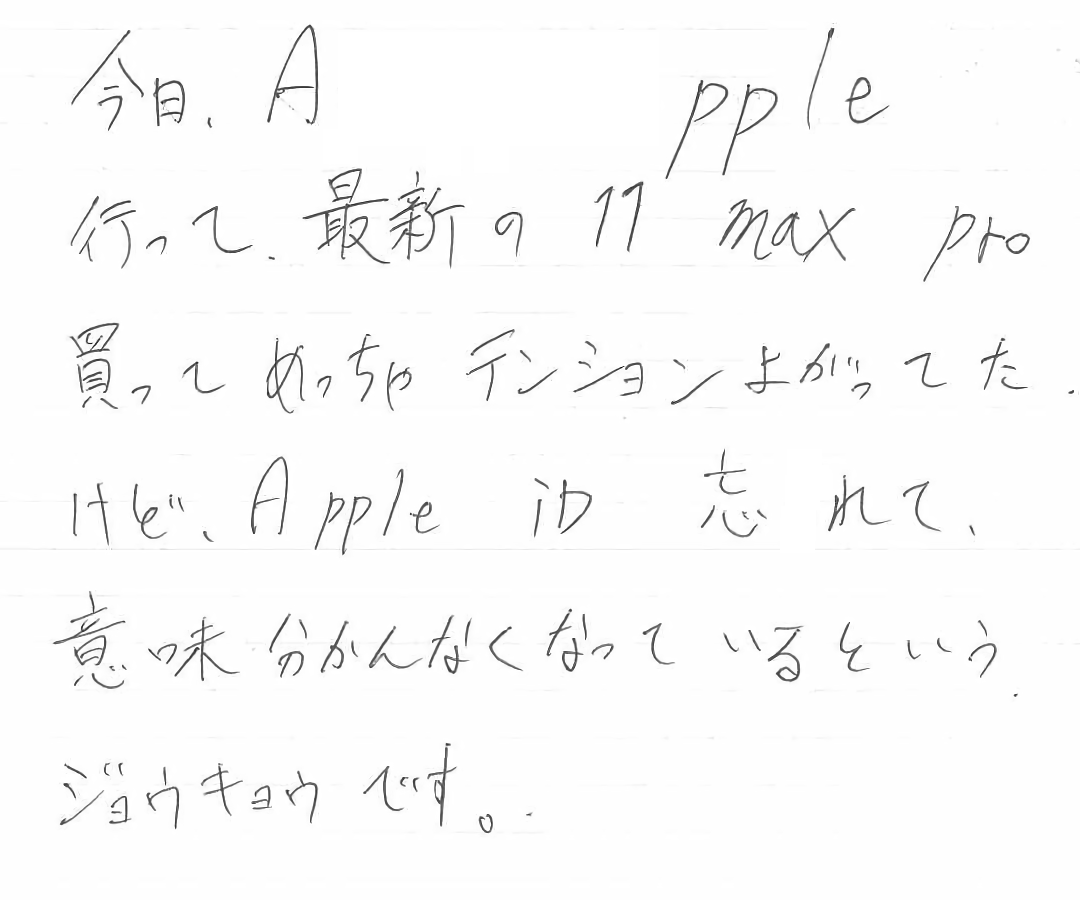 今日、A pple
行って、最新の 11 max pro
買って めっちゃ テンション よがってた.
けど、Apple iD 忘れて、
意味分かんなくなって いるという.
ジョウキョウです。